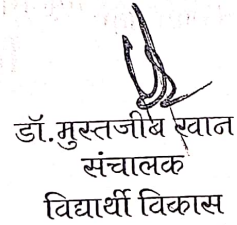 डॉ.मुस्तजीब खान
संचालक
विद्यार्थी विकास